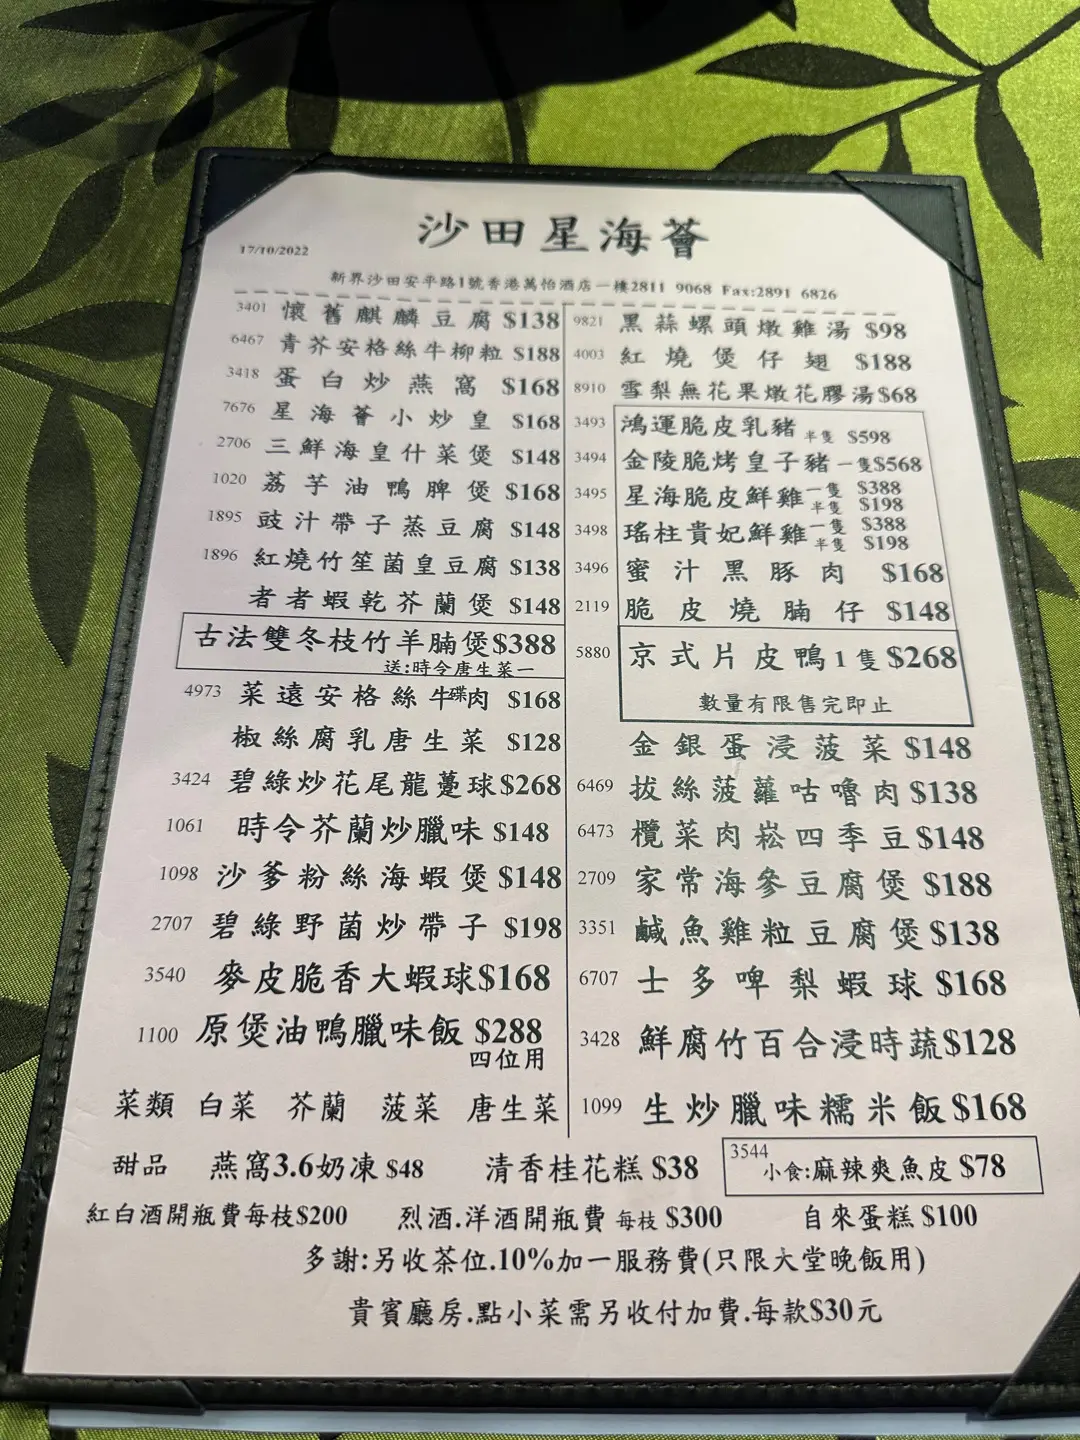 沙田星海薈
17/10/2022
新界沙田安平路1號香港萬怡酒店一樓2811 9068 Fax:2891 6826
3401 懷舊麒麟豆腐 $138
6467 青芥安格絲牛柳粒 $188
3418 蛋白炒燕窩 $168
7676 星海薈小炒皇 $168
2706 三鮮海皇什菜煲 $148
1020 荔芋油鴨脾煲 $168
1895 豉汁帶子蒸豆腐 $148
1896 紅燒竹笙菌皇豆腐 $138
者者蝦乾芥蘭煲 $148
古法雙冬枝竹羊腩煲$388
送:時令唐生菜一碟
4973 菜遠安格絲牛肉 $168
椒絲腐乳唐生菜 $128
3424 碧綠炒花尾龍躉球$268
1061 時令芥蘭炒臘味 $148
1098 沙爹粉絲海蝦煲 $148
2707 碧綠野菌炒帶子 $198
3540 麥皮脆香大蝦球$168
1100 原煲油鴨臘味飯 $288
四位用
菜類 白菜 芥蘭 菠菜 唐生菜
9821 黑蒜螺頭燉雞湯 $98
4003 紅燒煲仔翅 $188
8910 雪梨無花果燉花膠湯$68
3493 鴻運脆皮乳豬 半隻 $598
3494 金陵脆烤皇子豬 一隻$568
3495 星海脆皮鮮雞 一隻 $388
半隻 $198
3498 瑤柱貴妃鮮雞 一隻 $388
半隻 $198
3496 蜜汁黑豚肉 $168
2119 脆皮燒腩仔 $148
5880 京式片皮鴨1隻$268
數量有限售完即止
金銀蛋浸菠菜 $148
6469 拔絲菠蘿咕嚕肉 $138
6473 欖菜肉崧四季豆 $148
2709 家常海參豆腐煲 $188
3351 鹹魚雞粒豆腐煲 $138
6707 士多啤梨蝦球 $168
3428 鮮腐竹百合浸時蔬$128
1099 生炒臘味糯米飯 $168
甜品 燕窩3.6奶凍 $48 清香桂花糕 $38
3544 小食:麻辣爽魚皮 $78
紅白酒開瓶費每枝$200 烈酒.洋酒開瓶費 每枝 $300 自來蛋糕 $100
多謝:另收茶位.10%加一服務費(只限大堂晚飯用)
貴賓廳房.點小菜需另收付加費.每款$30元